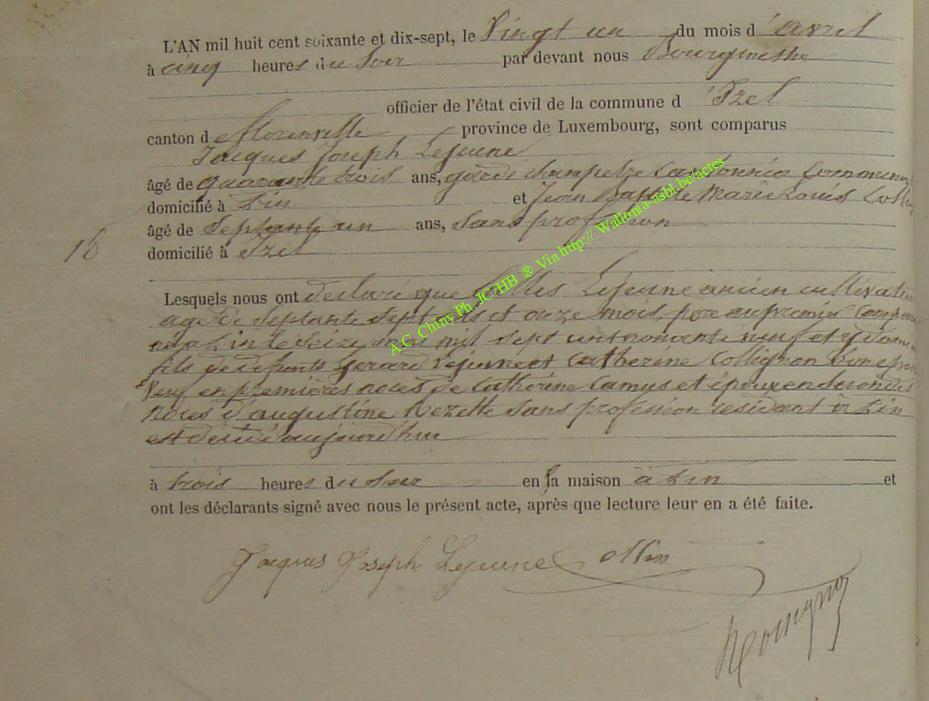 L'AN mil huit cent soixante et dix-sept, le Vingt un du mois d'avril
à cinq heures du soir par devant nous Bourgmestre
officier de l'état civil de la commune d'Izel
canton de florenville province de Luxembourg, sont comparus
Jacques Joseph Lejeune
âgé de quarante trois ans, garde champetre
domicilié à Pin et Jean Baptiste Marie Louis Collin
âgé de Septante un ans, Sans profession
domicilié à Izel
16
Lesquels nous ont declaré que Lejeune ancien cultivateur
agé de Septante Sept ans et onze mois,
né à Pin le Seize mai mil Sept cent nonante neuf et y
fils de defunts Gerard Lejeune et Catherine Collignon
Veuf en premières noces de Catherine Camus et époux en Secondes
Noces d'augustine Sans profession residant à Pin
est décédé aujourd'hui
à trois heures du Soir en la maison à Pin et
ont les déclarants signé avec nous le présent acte, après que lecture leur en a été faite.
Jacques Joseph Lejeune Collin
A.C. Chiny Ph. JC/HB ® Via http:// Wallonia-asbl.be/actes